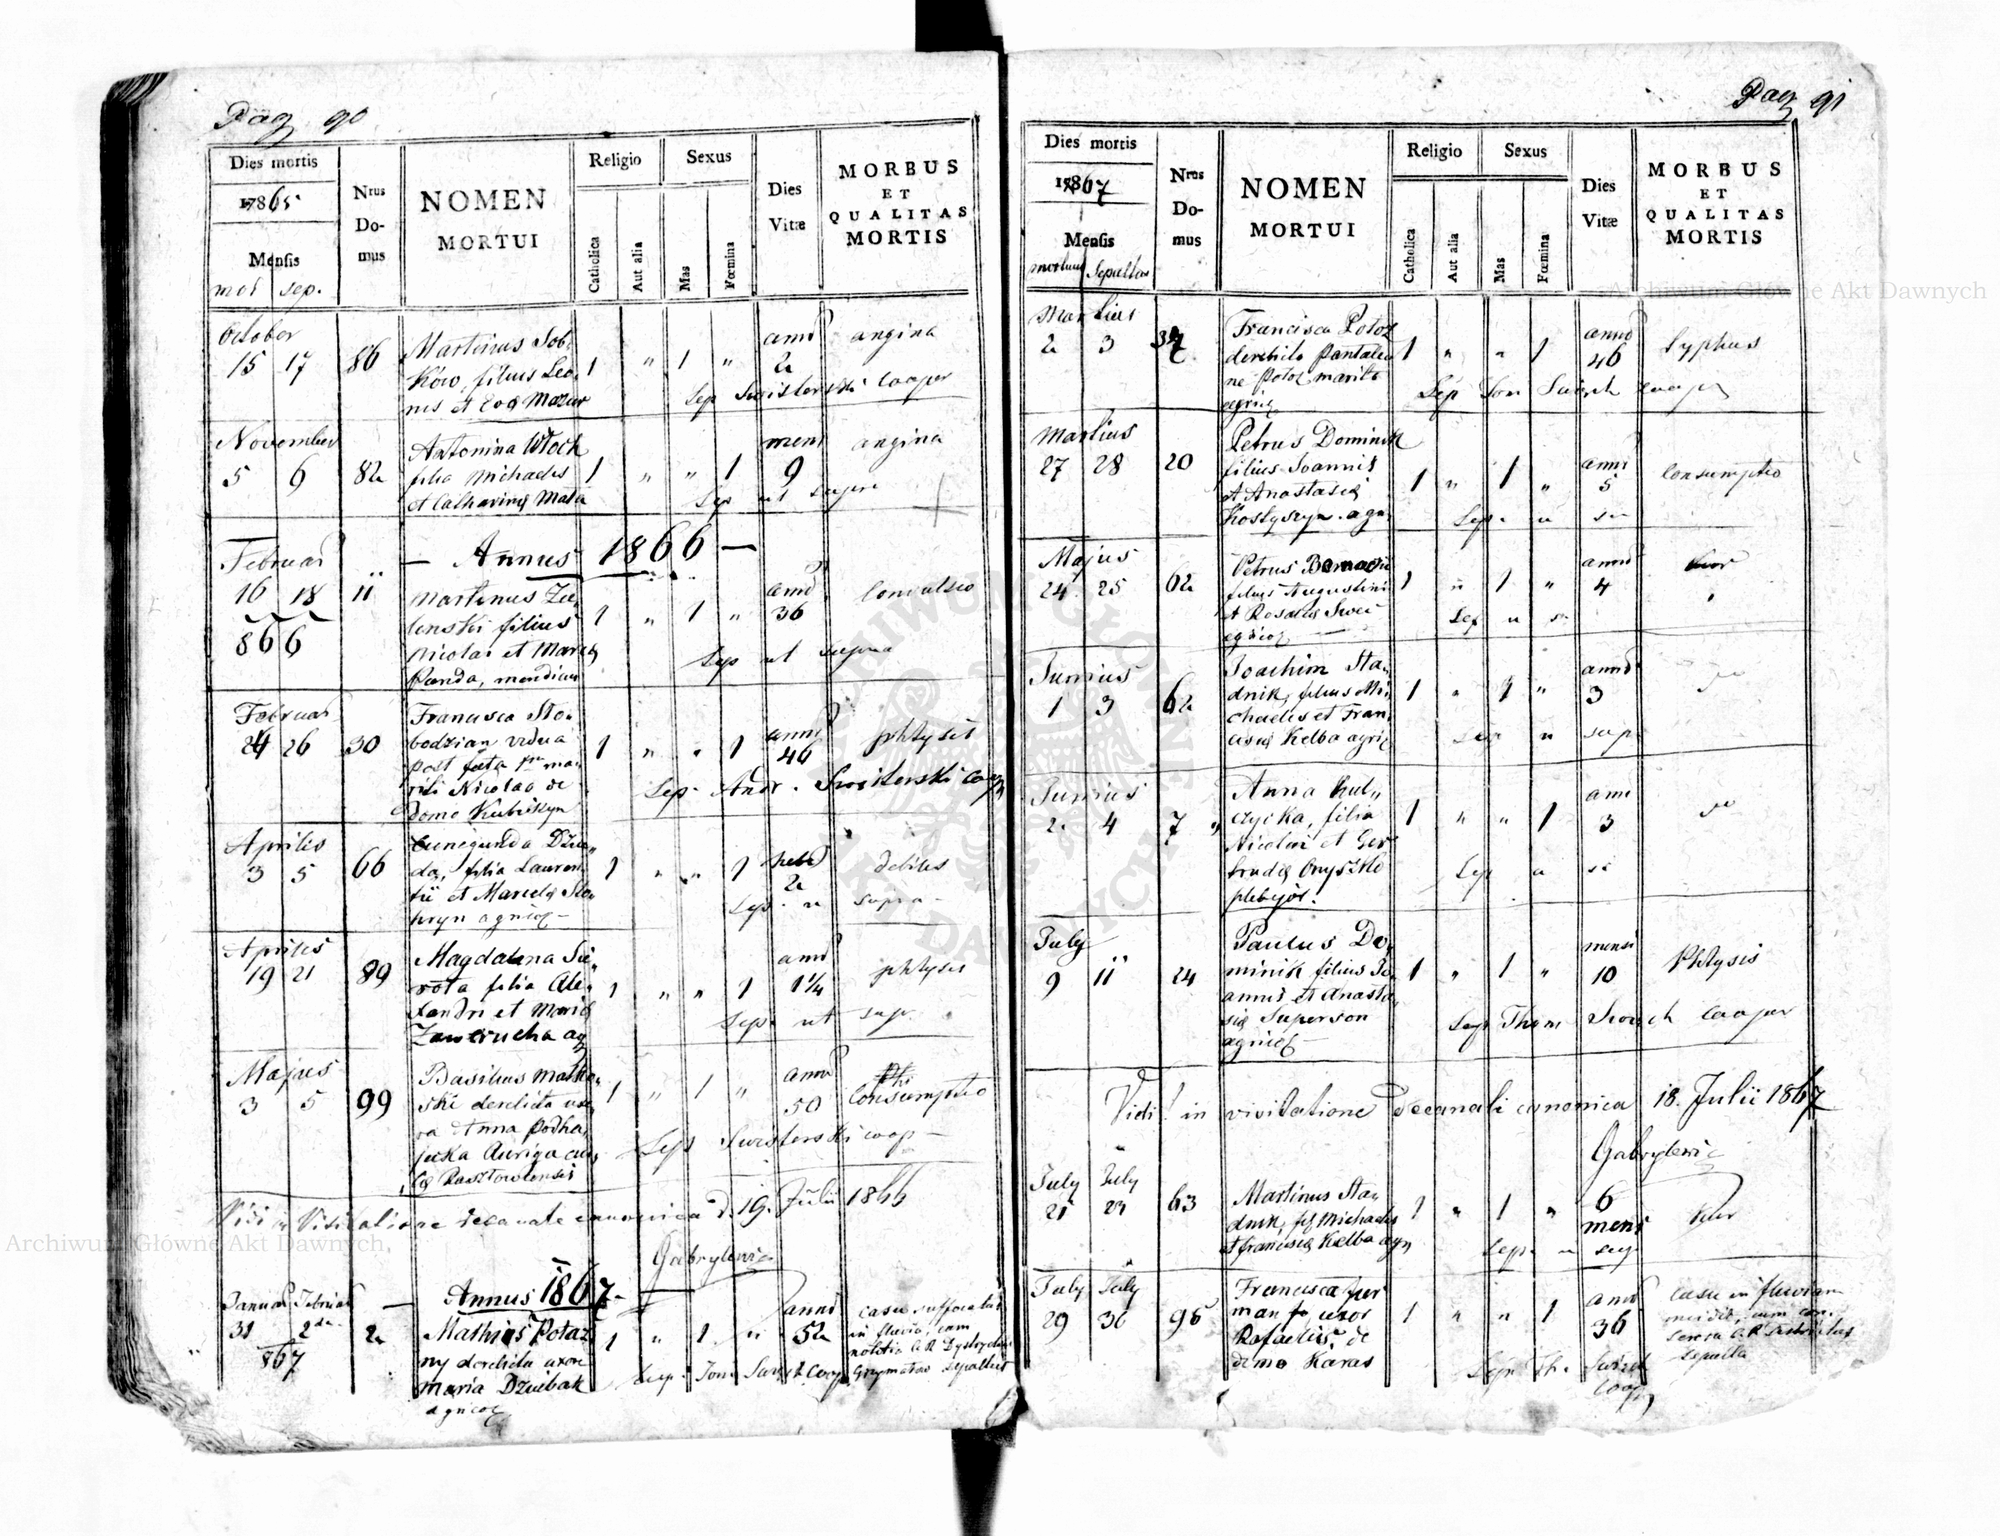 Pag 90
Dies mortis
1865
Mensis
mor sep.
Nrus
Do-
mus
NOMEN
MORTUI
Religio
Catholica
Aut alia
Sexus
Mas
Fœmina
Dies
Vitæ
MORBUS
ET
QUALITAS
MORTIS
October
15 17 86
Martinus Sob
ków, filius Leo
nis et Eva Mazur
1 " 1 "
anni
2
angina
Sep Swisterski cooper
November
5 6 82
Antonina Włoch
filia Michaelis
et Catharinę Mata
1 " " 1
mens
9
angina
Sep ut supra
— Annus 1866 —
Februar
16 18 11
866
Martinus Zie
lenski filius
Nicolai et Marię
Panda, mendicus
1 " 1 "
anni
36
Convulsio
Sep ut supra
Februar
24 26 30
Francisca Sło
bodzian vidua
post fata
mariti Nicolao de
domo Kubiskyn
1 " " 1
anni
46
phtysis
Sep. Andr. Swisterski coop
Aprilis
3 5 66
Cunegunda Dziu
da, filia Lauren
tii et Marielę
agricol
1 " " 1
hebd
2
debilis
Sep. u supra
Aprilis
19 21 89
Magdalena Sie
rota filia Ale
xandri et Marię
Zawerucha ag
1 " " 1
anni
1 1/4
phtysis
Sep. ut supr.
Majus
3 5 99
Basilius
ski derelicta uxo
ra Anna Podha
jecka Auriga
Rasztowiensis
1 " 1 "
anni
50
Consumptio
Sep Swisterski coop
Vidi in Visitatione decanale canonica d. 19. Julii 1866
Gabrylewicz
Annus 1867
Januar Februar
31 2da 2
867
Mathias Potaz
ny derelicta uxore
Maria Dziubak
agricol
1 " 1 "
anni
52
casu suffocatus
in fluvio, cum
notitia C.R. Dystryctus
Grzymałow sepultus
Sep. Tom. Swirch Coop
Pag 91
Dies mortis
1867
Mensis
mortuus Sepultus
Nrus
Do-
mus
NOMEN
MORTUI
Religio
Catholica
Aut alia
Sexus
Mas
Fœmina
Dies
Vitæ
MORBUS
ET
QUALITAS
MORTIS
Martius
2 3 34
Francisca Potoz
derelicto Pantaleo
ne Potoz marito
agricol
1 " " 1
anni
46
Typhus
Sep Tom Swirch coop
Martius
27 28 20
Petrus Dominik
filius Joannis
et Anastasię
Kostyszyn. agr.
1 " 1 "
anni
5
Consumptio
Sep. u su
Majus
24 25 62
Petrus
filius Augustini
et Rosalię
agricol
1 " 1 "
anni
4
Sep u s
Junius
1 3 62
Joachim Sta
dnik, filius Mi
chaelis et Fran
ciscę Kelba agric
1 " 1 "
anni
3
Sep u sup
Junius
2 4 7
Anna Kul
czycka, filia
Nicolai et Ger
trudę Onyszko
plebejor.
1 " " 1
anni
3
Sep u su
July
9 11 24
Paulus Do
minik filius Jo
annis et Anasta
się Superson
agricol
1 " 1 "
mensi
10
Phtysis
Sep Thom Swirch cooper
Vidi in visitatione decanali canonica 18. Julii 1867
Gabrylewicz
July July
63
Martinus Sta
dnik, fil Michaelis
et Franciscę Kelba agr
1 " 1 "
6
mens
Sep. u sup
July July
29 30 96
Francisca Fur
man uxor
Rafaelis de
domo Karas
1 " " 1
anni
36
casu in fluvium
sepulta
Sep. Th. Swirch
Coop
Archiwum Główne Akt Dawnych
Archiwum Główne Akt Dawnych
ARCHIWUM GŁÓWNE AKT DAWNYCH